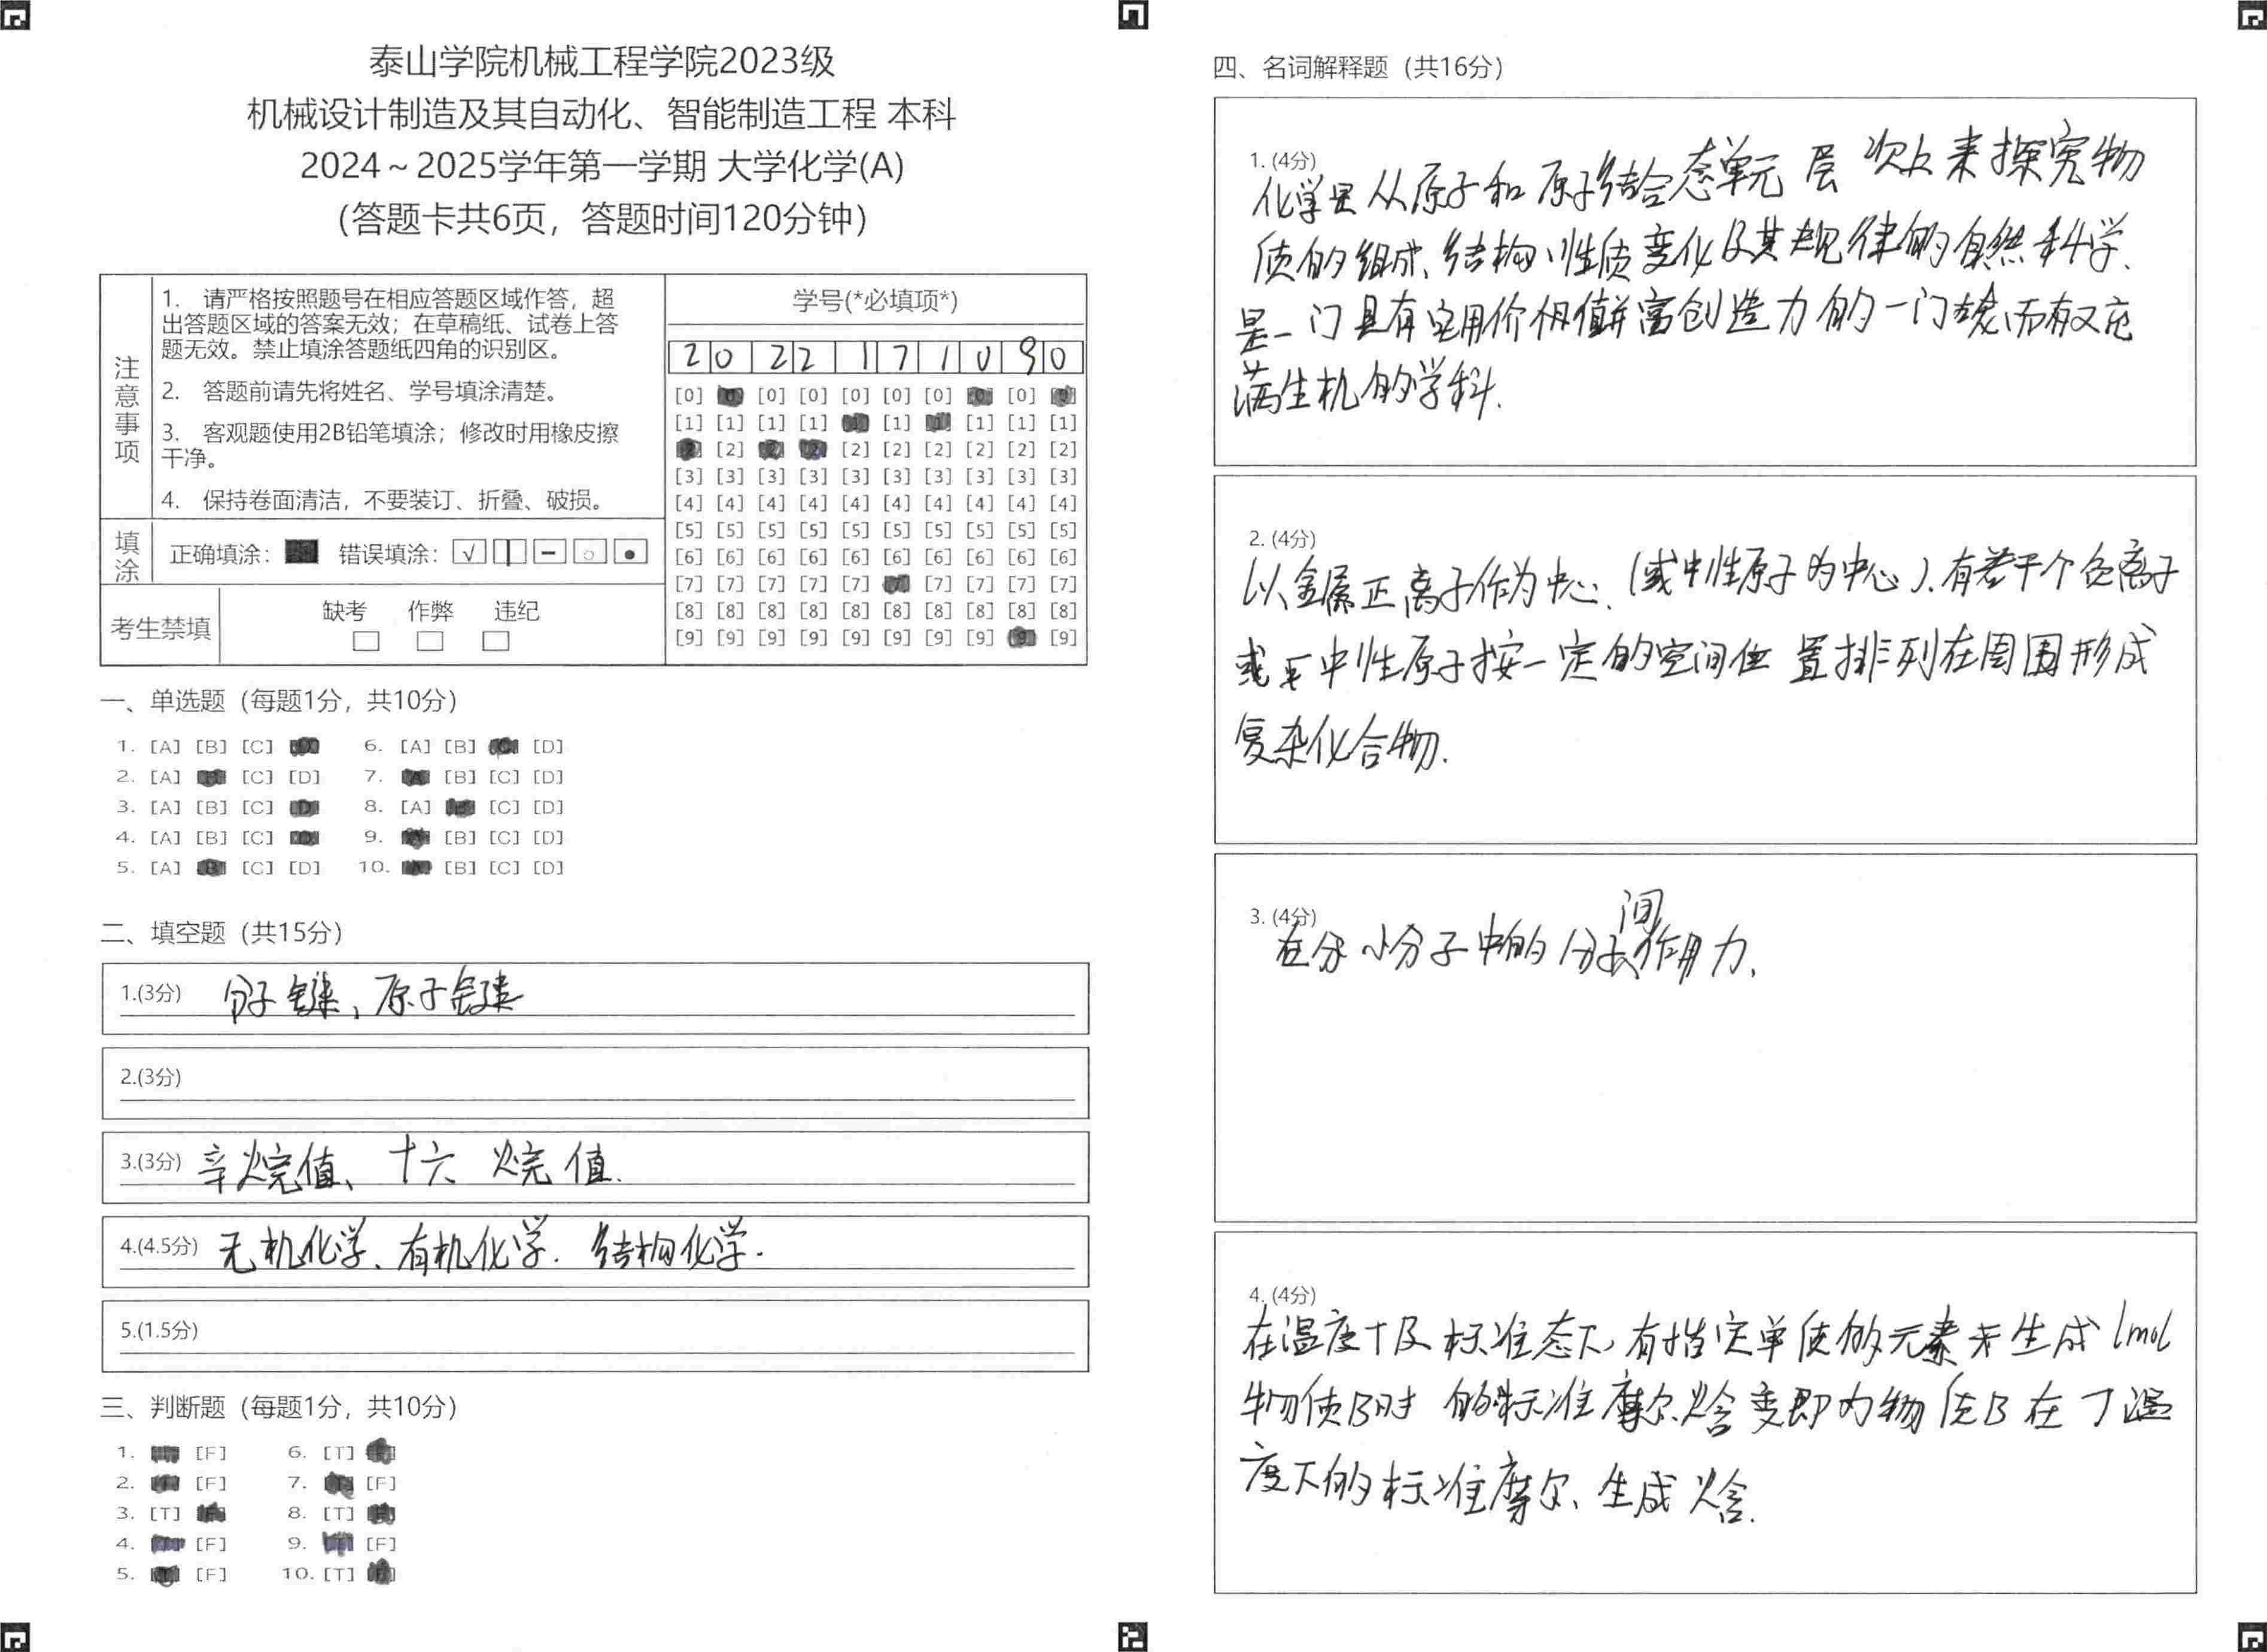 泰山学院机械工程学院2023级
机械设计制造及其自动化、智能制造工程 本科
2024～2025学年第一学期 大学化学(A)
(答题卡共6页，答题时间120分钟)
注意事项
1. 请严格按照题号在相应答题区域作答，超
出答题区域的答案无效；在草稿纸、试卷上答
题无效。禁止填涂答题纸四角的识别区。
2. 答题前请先将姓名、学号填涂清楚。
3. 客观题使用2B铅笔填涂；修改时用橡皮擦
干净。
4. 保持卷面清洁，不要装订、折叠、破损。
填涂 正确填涂： 错误填涂：
考生禁填 缺考 作弊 违纪
学号(*必填项*)
2 0 2 2 1 7 1 0 9 0
[0] [0] [0] [0] [0] [0] [0] [0]
[1] [1] [1] [1] [1] [1] [1] [1]
[2] [2] [2] [2] [2] [2] [2]
[3] [3] [3] [3] [3] [3] [3] [3] [3] [3]
[4] [4] [4] [4] [4] [4] [4] [4] [4] [4]
[5] [5] [5] [5] [5] [5] [5] [5] [5] [5]
[6] [6] [6] [6] [6] [6] [6] [6] [6] [6]
[7] [7] [7] [7] [7] [7] [7] [7] [7]
[8] [8] [8] [8] [8] [8] [8] [8] [8] [8]
[9] [9] [9] [9] [9] [9] [9] [9] [9]
一、单选题（每题1分，共10分）
1. [A] [B] [C] 6. [A] [B] [D]
2. [A] [C] [D] 7. [B] [C] [D]
3. [A] [B] [C] 8. [A] [C] [D]
4. [A] [B] [C] 9. [B] [C] [D]
5. [A] [C] [D] 10. [B] [C] [D]
二、填空题（共15分）
1.(3分) 分子键、原子键
2.(3分)
3.(3分) 辛烷值、十六烷值.
4.(4.5分) 无机化学、有机化学. 结构化学.
5.(1.5分)
三、判断题（每题1分，共10分）
1. [F] 6. [T]
2. [F] 7. [F]
3. [T] 8. [T]
4. [F] 9. [F]
5. [F] 10. [T]
四、名词解释题（共16分）
1. (4分)
化学是从原子和原子结合态单元层次上来探究物
质的组成、结构、性质变化及其规律的自然科学.
是一门具有实用价值并富创造力的一门而有又充
满生机的学科.
2. (4分)
以金属正离子作为中心、(或中性原子为中心).有若干个负离子
或中性原子按一定的空间位置排列在周围形成
复杂化合物.
3. (4分)
在小分子中的分子间作用力.
4. (4分)
在温度T及标准态下,有指定单质的元素生成1mol
物质B时的标准摩尔焓变即为物质B在T温
度下的标准摩尔、生成焓.